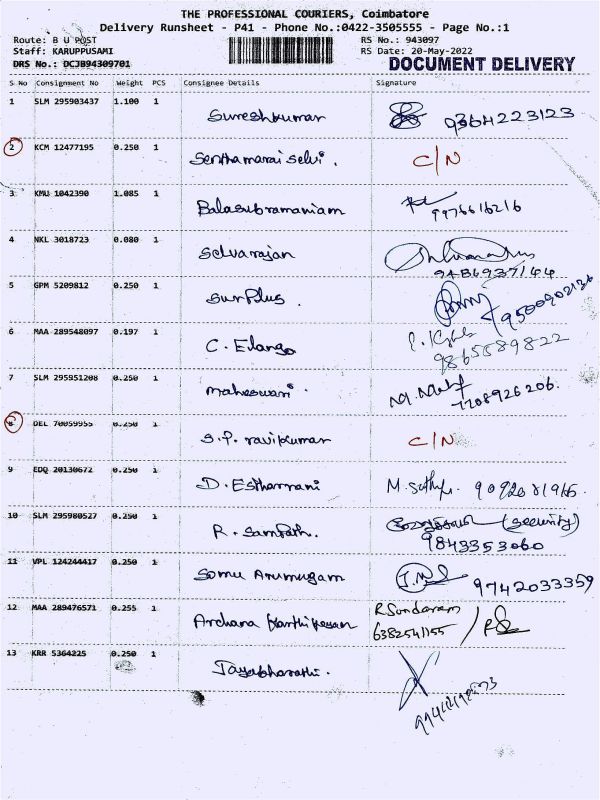 THE PROFESSIONAL COURIERS, Coimbatore
Delivery Runsheet - P41 - Phone No.:0422-3505555 - Page No.:1
Route: B U POST RS No.: 943097
Staff: KARUPPUSAMI RS Date: 20-May-2022
DRS No.: DCJB94309701 DOCUMENT DELIVERY
S No Consignment No Weight PCS Consignee Details Signature
1 SLM 295903437 1.100 1 Sureshkumar 9364223123
2 KCM 12477195 0.250 1 Senthamarai selvi. C/N
3 KMU 1042390 1.085 1 Balasubramaniam 9976616216
4 NKL 3018723 0.080 1 Selvarajan
5 GPM 5209812 0.250 1 Surplus. 9500902136
6 MAA 289548097 0.197 1 C. Elango 9865589822
7 SLM 295951208 0.250 1 Maheswari. 7708926206.
8 DEL 70059955 0.250 1 S.P. ravikumar C/N
9 EDQ 20130672 0.250 1 D. Estharrani
10 SLM 295980527 0.250 1 R. Sampath. (Security)
9843353060
11 VPL 124244417 0.250 1 Somu Arumugam 9742033359
12 MAA 289476571 0.255 1 Archana Karthikeyan R Sundaram
6382541155
13 KRR 5364225 0.250 1 Jayabharathi.